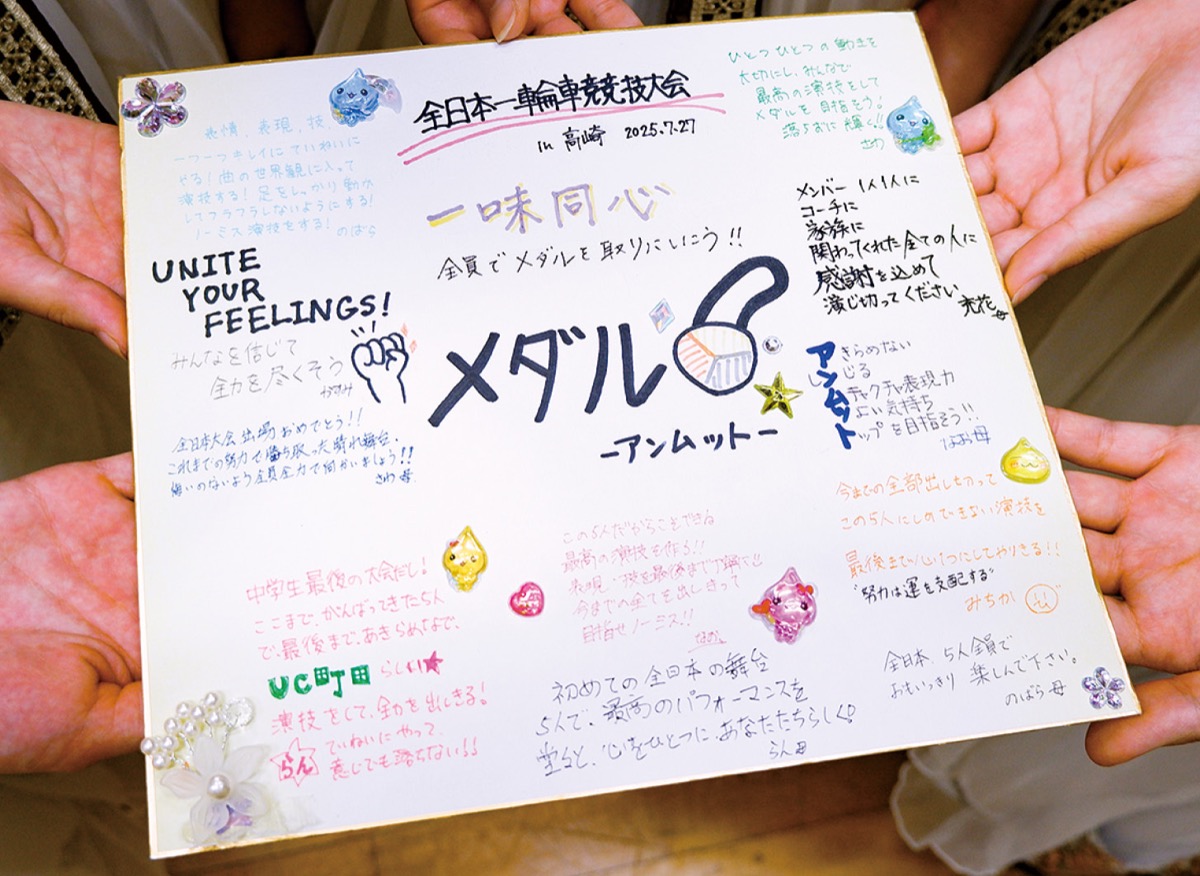 全日本一輪車競技大会
in 高崎 2025.7.27
一味同心
全員でメダルを取りにいこう!!
メダル
ーアンムットー
表情、表現、技、
一つ一つキレイにていねいに
やる!曲の世界観に入って
演技する!足をしっかり動か
してフラフラしないようにする!
ノーミス演技をする!
のばら
UNITE
YOUR
FEELINGS!
みんなを信じて
全力を尽くそう
全日本大会出場おめでとう!!
これまでの努力で勝ち取った晴れ舞台、
悔いのないよう全員全力で向かいましょう!!
さわ 母
ひとつひとつの動きを
大切にし、みんなで
最高の演技をして
メダルを目指そう!
落ちずに輝く!!
さわ
メンバー 1人1人に
コーチに
家族に
関わってくれた全ての人に
感謝を込めて
演じ切ってください
母
アきらめない
ンじる
ムチャクチャ表現力
ッよい気持ち
トップを目指そう!!
なお母
今までの全部出し切って
この5人にしかできない演技を
最後まで心1つにしてやりきる!!
"努力は運を支配する"
みちか
中学生最後の大会だし!
ここまで、がんばってきた5人
で、最後まで、あきらめないで、
UC町田 らしい★
演技をして、全力を出しきる!
ていねいにやって、
意じでも落ちない!!
らん
この5人だからこそできる
最高の演技を作る!!
表現・技を最後まで丁寧で!!
今までの全てを出しきって
目指せノーミス!!
なお
初めての全日本の舞台
5人で、最高のパフォーマンスを
堂々と、心をひとつに、あなたたちらしく!
らん母
全日本、5人全員で
おもいっきり 楽しんで下さい。
のばら母